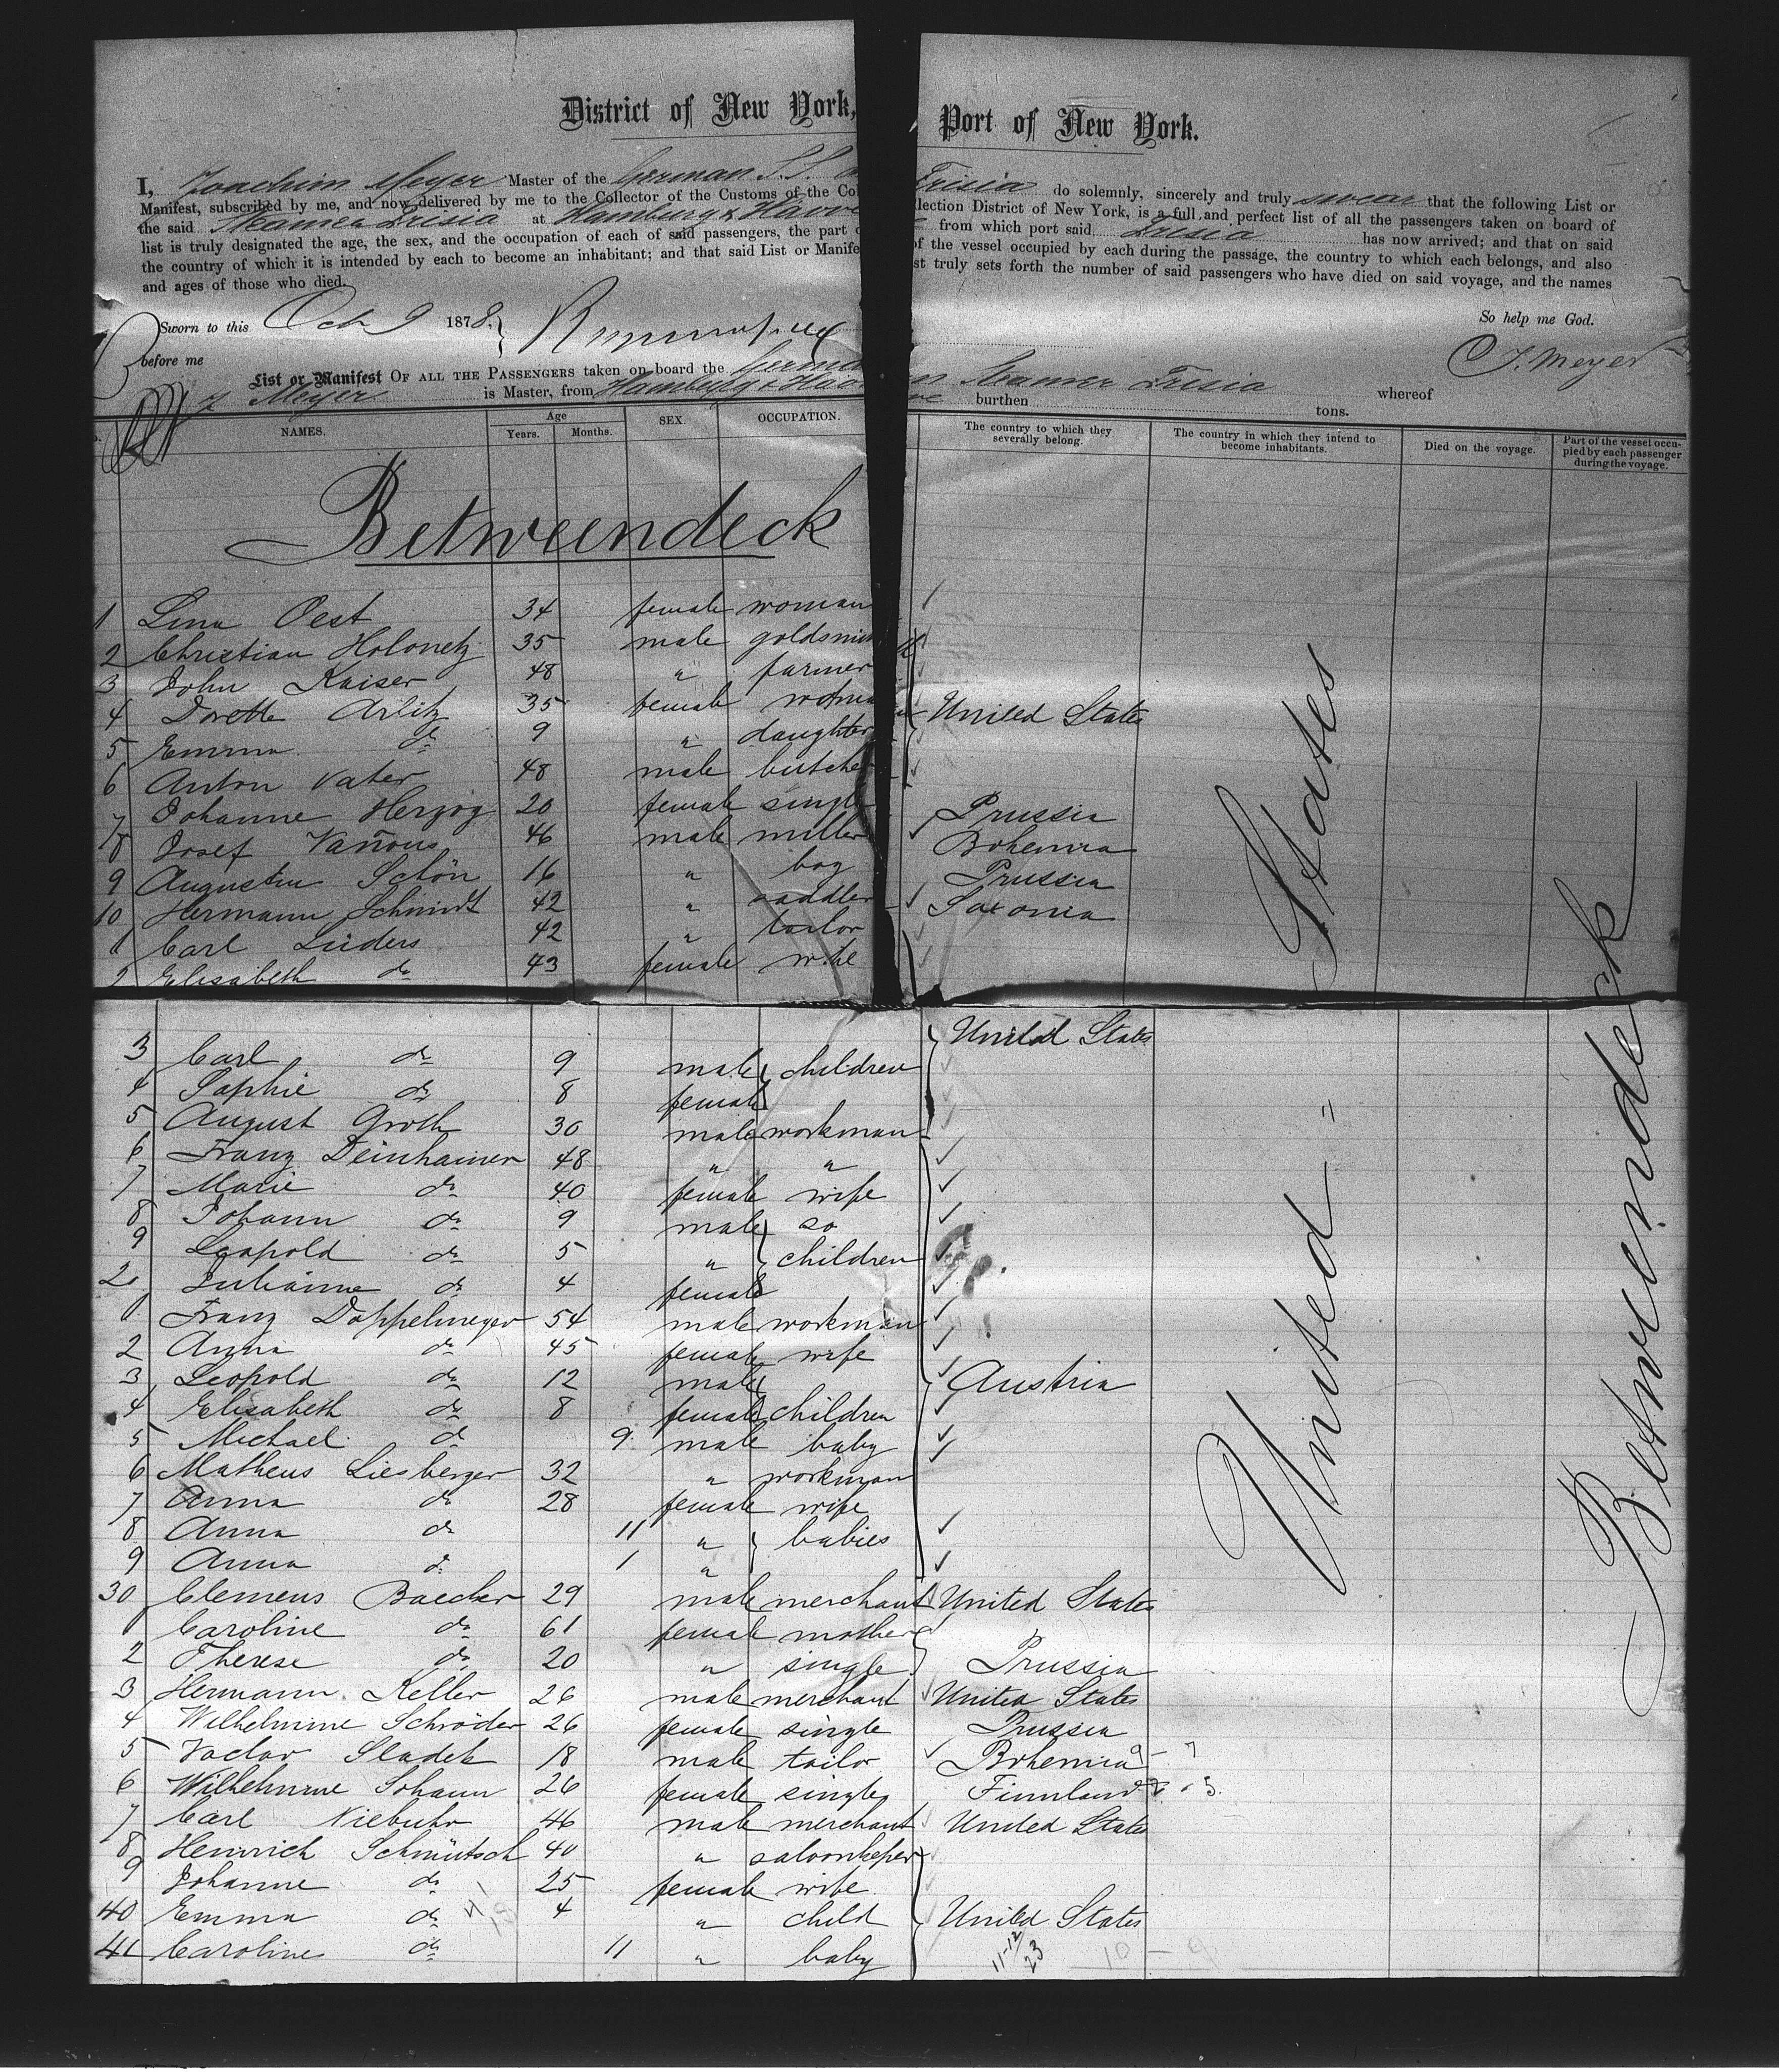 District of New York, Port of New York.
I, Joachim Meyer Master of the German S.S. Frisia do solemnly, sincerely and truly swear that the following List or
Manifest, subscribed by me, and now delivered by me to the Collector of the Customs of the Collection District of New York, is a full and perfect list of all the passengers taken on board of
the said Steamer Frisia at Hamburg & Havre from which port said Frisia has now arrived; and that on said
list is truly designated the age, the sex, and the occupation of each of said passengers, the part of the vessel occupied by each during the passage, the country to which each belongs, and also
the country of which it is intended by each to become an inhabitant; and that said List or Manifest truly sets forth the number of said passengers who have died on said voyage, and the names
and ages of those who died.
So help me God.
Sworn to this Oct 9 1878.
before me
J. Meyer
List or Manifest OF ALL THE PASSENGERS taken on board the German Steamer Frisia whereof
J Meyer is Master, from Hamburg & Havre burthen tons.
NAMES. Age Years. Months. SEX. OCCUPATION. The country to which they severally belong. The country in which they intend to become inhabitants. Died on the voyage. Part of the vessel occupied by each passenger during the voyage.
Betweendeck
1 Lina Oest 34 female woman
2 Christian Holonetz 35 male goldsmith
3 John Kaiser 48 " farmer
4 Dorette Arlitz 35 female woman United States
5 Emma do 9 " daughter
6 Anton Vater 48 male butcher
7 Johanne Herzog 20 female single Prussia
8 Josef Vañous 46 male miller Bohemia
9 Augustin Schön 16 " boy Prussia
10 Hermann Schmidt 42 " saddler Saxonia
1 Carl Lüders 42 " tailor
2 Elisabeth do 43 female wife
3 Carl do 9 male children United States
4 Sophie do 8 female
5 August Groth 30 male workman
6 Franz Deinhamer 48 " "
7 Marie do 40 female wife
8 Johann do 9 male so
9 Leopold do 5 " children
20 Julianne do 4 female
1 Franz Doppelmeyer 54 male workman
2 Anna do 45 female wife
3 Leopold do 12 male Austria
4 Elisabeth do 8 female children
5 Michael do 9 male baby
6 Matheus Liesberger 32 " workman
7 Anna do 28 female wife
8 Anna do 11 " babies
9 Anna do 1 "
30 Clemens Baecker 29 male merchant United States
1 Caroline do 61 female mother
2 Therese do 20 " single Prussia
3 Hermann Keller 26 male merchant United States
4 Wilhelmine Schröder 26 female single Prussia
5 Vaclav Sladek 18 male tailor Bohemia
6 Wilhelmine Johann 26 female single Finnland
7 Carl Niebuhr 46 male merchant United States
8 Heinrich Schmütsch 40 " saloonkeper
9 Johanne do 25 female wife
40 Emma do 4 " child United States
41 Caroline do 11 " baby
11-12/23 10 - 9
United States
Betweendeck